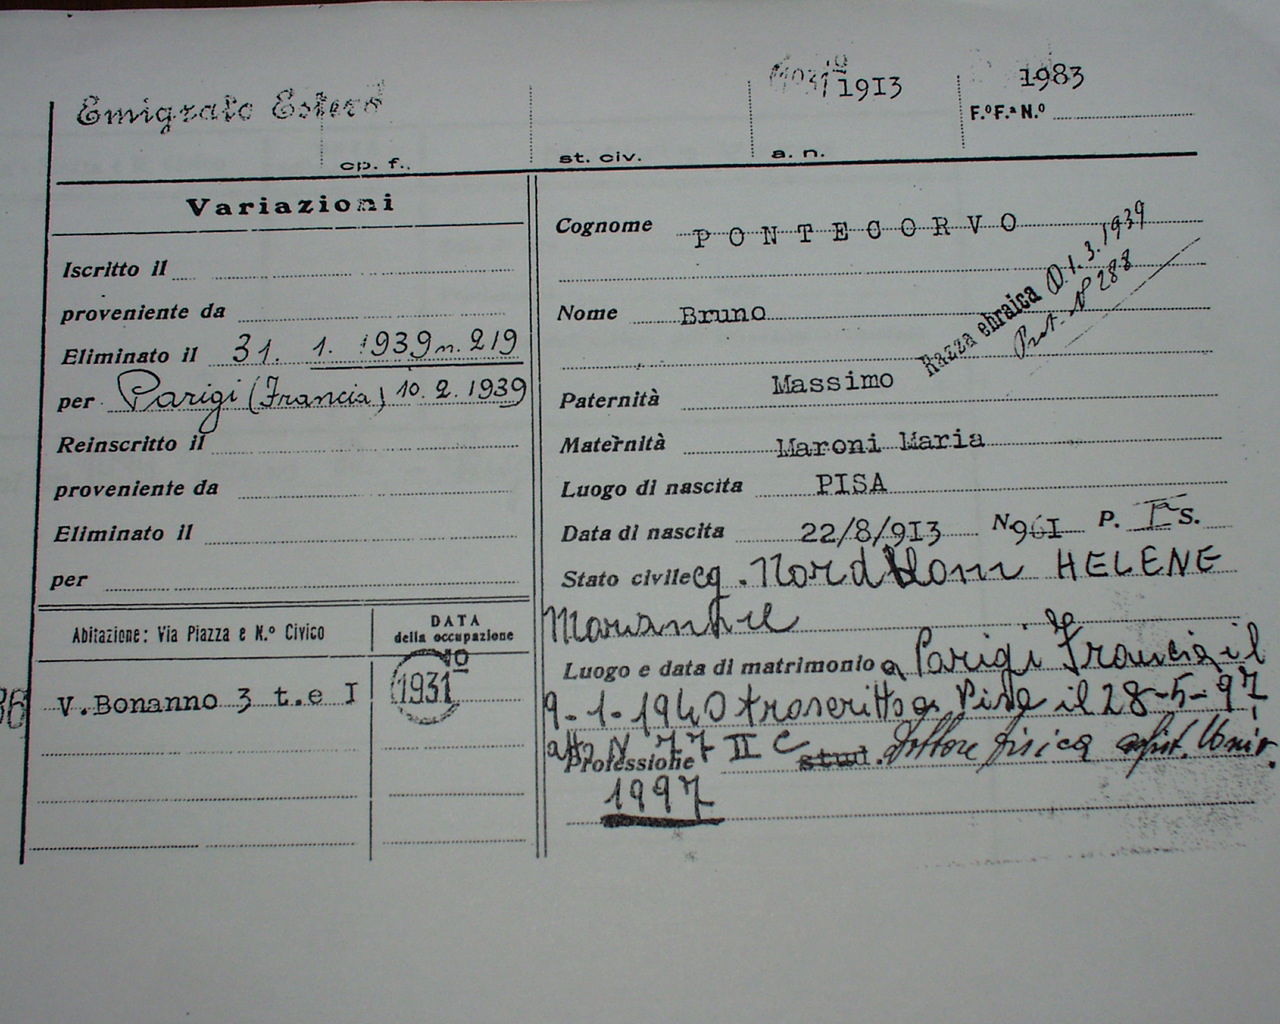 Emigrato Estero
1913
1983
F.º F.ª N.º
cp. f.
st. civ.
a. n.
Variazioni
Iscritto il
proveniente da
Eliminato il 31. 1. 1939 n. 219
per Parigi (Francia) 10. 2. 1939
Reinscritto il
proveniente da
Eliminato il
per
Abitazione: Via Piazza e N.º Civico
DATA
della occupazione
V.Bonanno 3 t.e I
1931
Cognome PONTECORVO
Razza ebraica D. 1. 3. 1939
Prot. Nº 288
Nome Bruno
Paternità Massimo
Maternità Maroni Maria
Luogo di nascita PISA
Data di nascita 22/8/9I3 N. 96I P. Iª S.
Stato civile cg. Nordblom HELENE
Marianne
Luogo e data di matrimonio a Parigi Francia il
9-1-1940 trascritto a Pisa il 28-5-97
atto N. 77 II C
Professione stud. dottore fisica assist. Univ.
1997